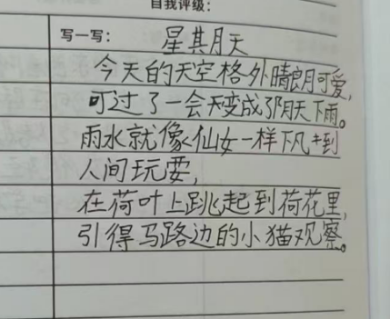 自我评级:
写一写: 星其月天
今天的天空格外晴朗可爱,
可过了一会天变成了阴天下雨。
雨水就像仙女一样下凡+到
人间玩耍,
在荷叶上跳起到荷花里,
引得马路边的小猫观察。